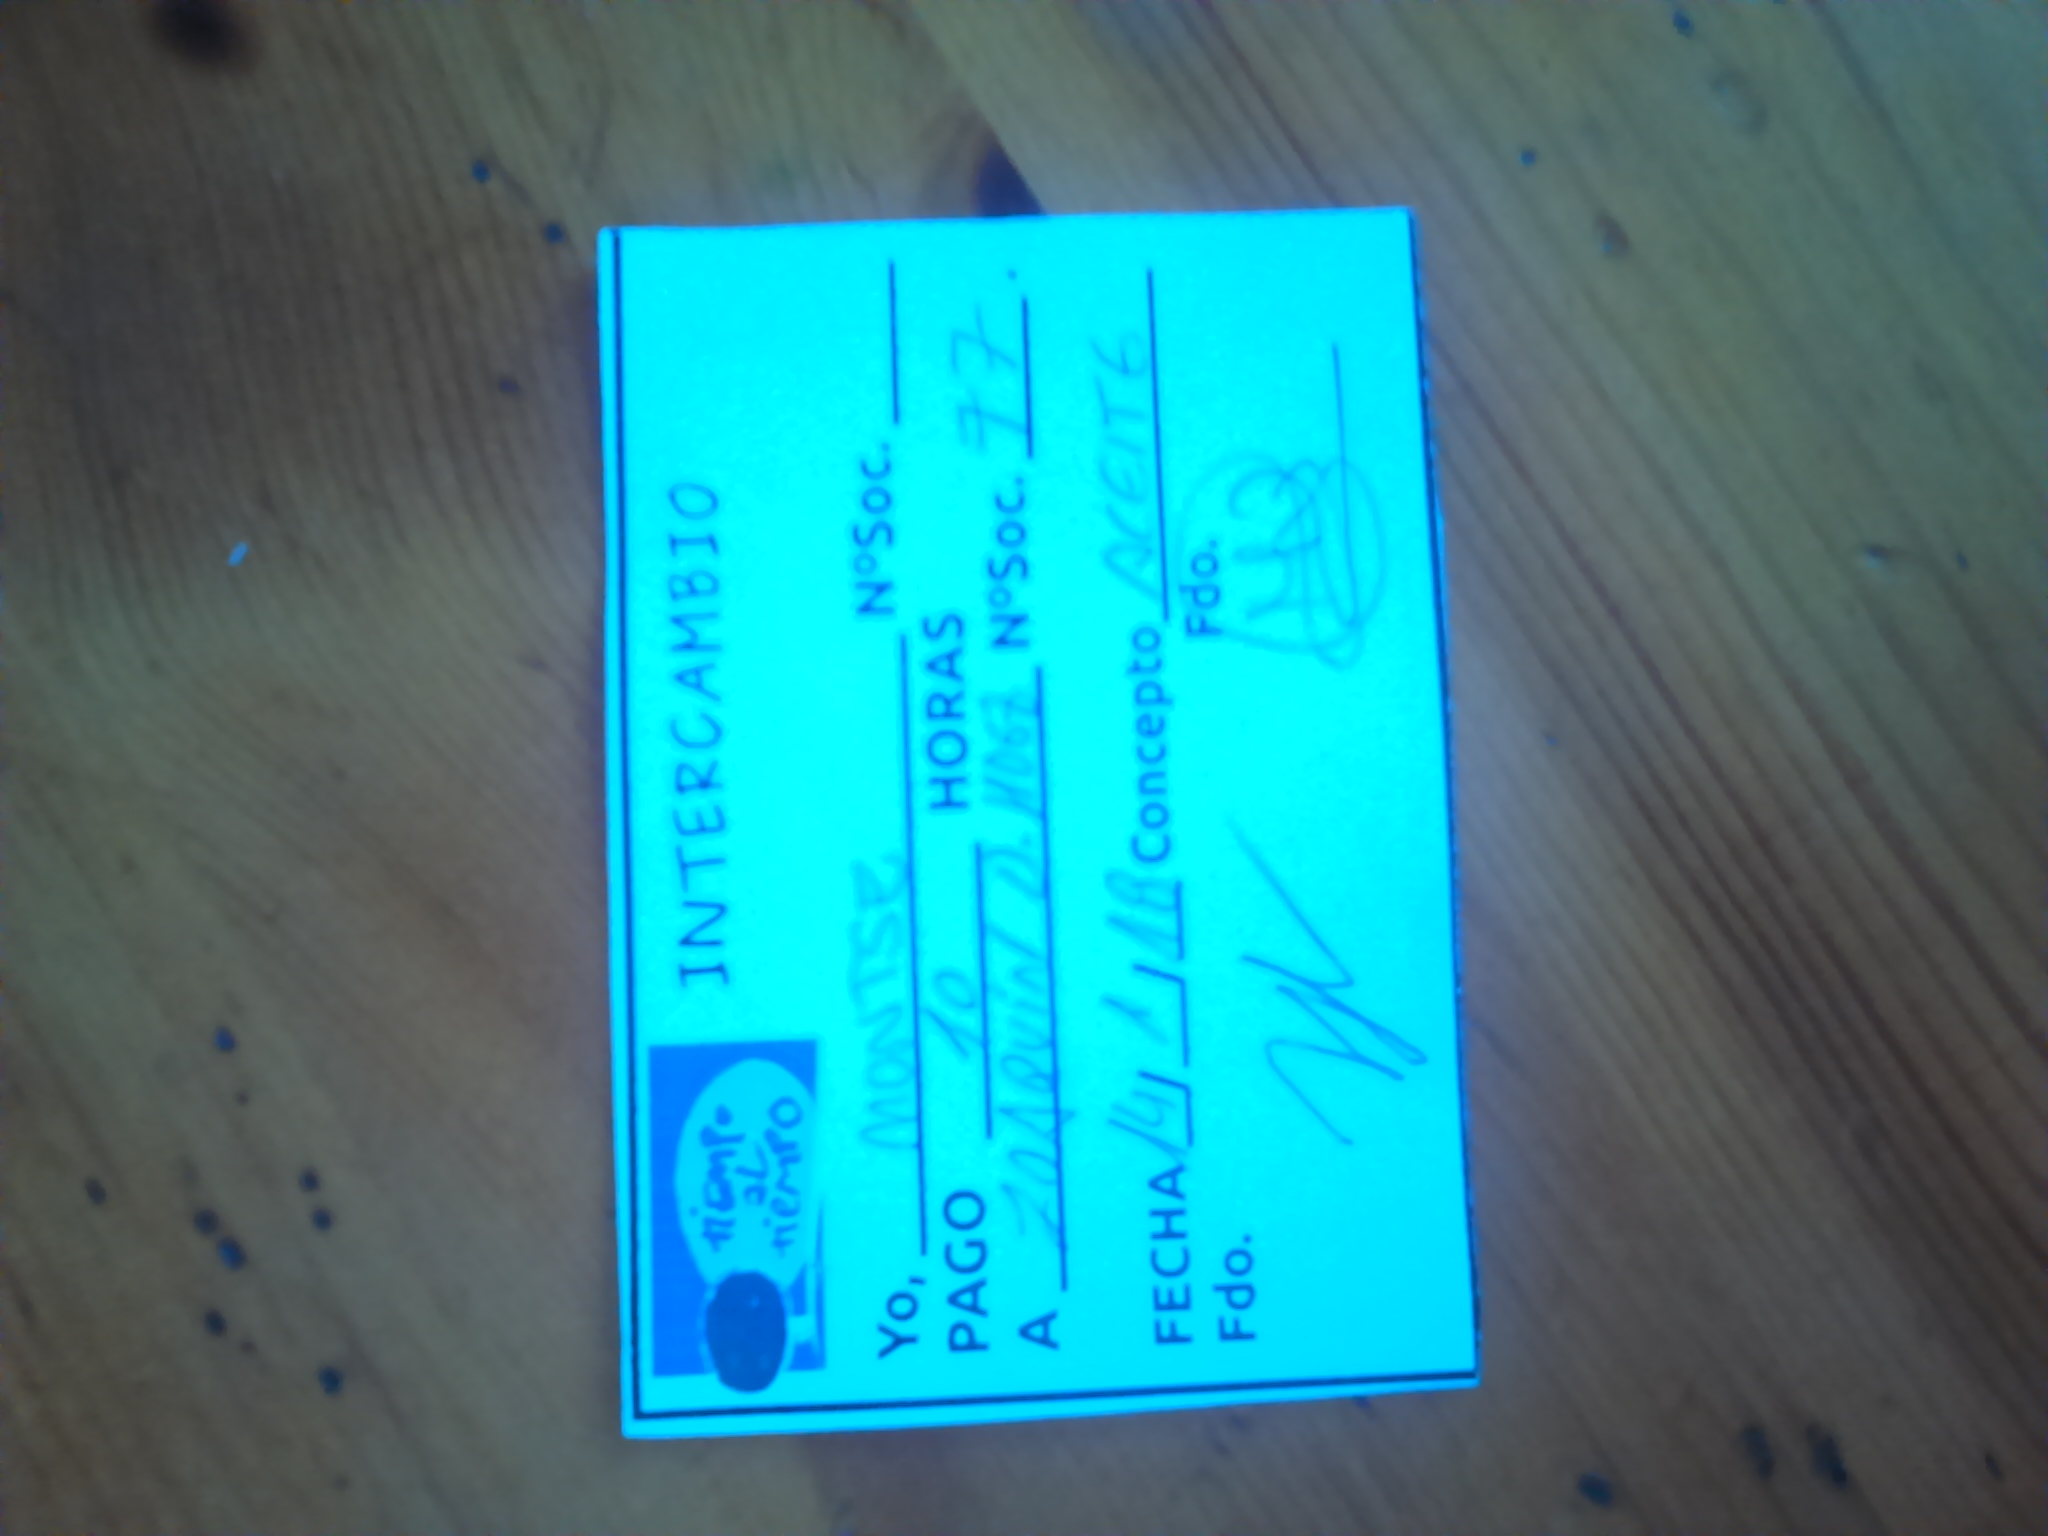 tiempo
al
tiempo
INTERCAMBIO
Yo, MONTSE NºSoc.
PAGO 10 HORAS
A JOAQUÍN D. NºSoc. 77.
FECHA 14/1/18 Concepto ACEITE
Fdo. Fdo.